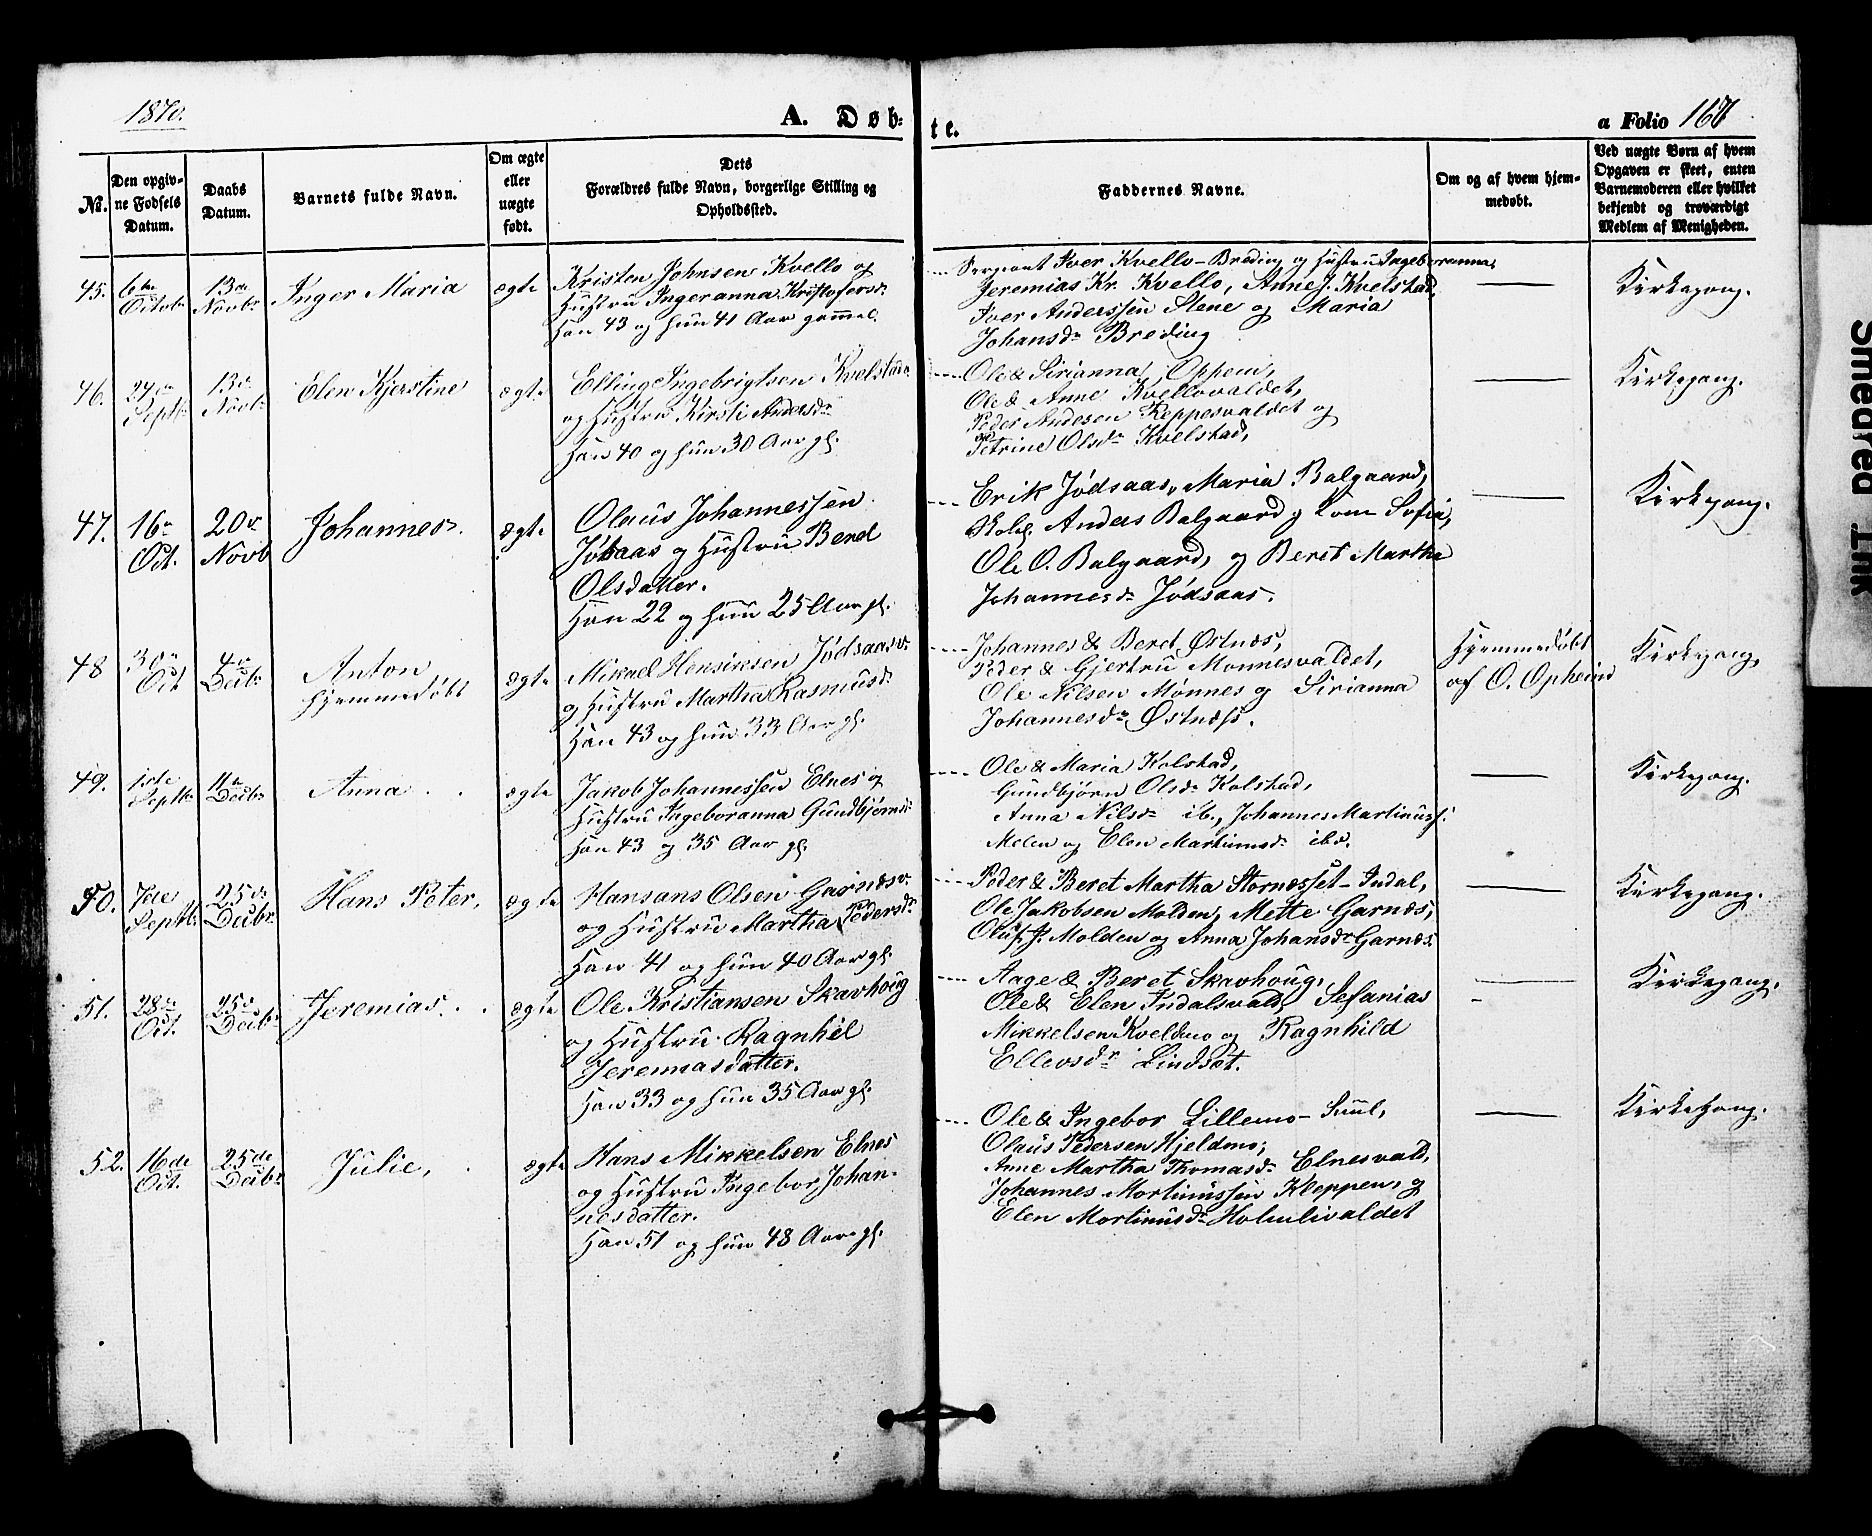 1870.
A. Døb-
te.
a Folio 167
No.
Den opgiv-
ne Fødsels
Datum.
Daabs
Datum.
Barnets fulde Navn.
Om ægte
eller
uægte
født.
Dets
Forældres fulde Navn, borgerlige Stilling og
Opholdssted.
Faddernes Navne.
Om og af hvem hjem-
medøbt.
Ved uægte Børn af hvem
Opgaven er skeet, enten
Barnemoderen eller hvilket
bekjendt og troværdigt
Medlem af Menigheden.
45.
6te
Octob
13de
Novbr
Inger Maria
ægte
Kristen Johnsen Kvello og
Hustru Ingeranna Kristofersdr
Han 43 og hun 41 Aar gammel.
Sergeant Iver Kvello-Breding og Hustru Ingeboranna,
Jeremias Kr. Kvello, Anne J. Kvelstad,
Iver Anderssen Slene og Maria
Johansdr Breding
Kirkegang.
46.
Septb
13de
Novbr
Elen Kjerstine
ægte
Elling Ingebrigtsen Kvelstad
og Hustru Kirsti Andersdr
Han 40 og hun 30 Aar gl.
Ole & Sirianna Ophem,
Ole & Anne Kvellovaldet,
Peder Andesen Keppesvaldet og
Petrine Olsdr Kvelstad,
Kirkegang.
47.
16de
Oct.
20de
Novb
Johannes.
ægte
Olaus Johannessen
Jøsaas og Hustru Beret
Olsdatter.
Han 22 og hun 25 Aar gl.
Erik Jødsaas, Maria Balgaard,
Anders Balgaard og Kone Sofia,
Ole O. Balgaard, og Beret Martha
Johannesdr Jødsaas.
Kirkegang.
48
30de
Oct
4de
Decbr
Anton
hjemmedøbt
ægte
Mikael Henriksen Jødsaasv.
og Hustru Martha Rasmusdr
Han 43 og hun 33 Aar gl.
Johannes & Beret Østnæs,
Peder & Gjertru Monnesvaldet,
Ole Nilsen Mønnes og Sirianna
Johannesdr Østnæss.
Hjemmedøbt
af O. Opheim
Kirkegang
49.
1ste
Septb
11te
Decbr
Anna
ægte
Jakob Johannessen Elnes og
Hustru Ingeboranna Gundbjørnsdr
Han 43 og 35 Aar gl.
Ole & Maria Kolstad,
Gundbjørn Olsdr Kolstad,
Anna Nilsdr ib., Johannes Martinuss.
Melen og Elen Martinusdr ibd.
Kirkegang.
50.
Septb.
25de
Decbr
Hans Peter,
ægte
Hansans Olsen Garnæsv.
og Hustru Martha Pedersdr
Han 41 og hun 40 Aar gl.
Peder & Beret Martha Stornesset-Indal,
Ole Jakobsen Molden, Mette Garnæs,
Oluf P. Molden og Anna Johansdr Garnæs.
Kirkegang.
51.
28de
Oct.
25de
Decbr
Jeremias.
ægte
Ole Kristiansen Skavhoug
og Hustru Ragnhel
Jeremiasdatter.
Han 33 og hun 35 Aar gl.
Aage & Beret Skavhoug,
Ole & Elen Indalsvald, Sefanias
Mikkelsen Kveldmo og Ragnhild
Ellevsdr Lindset.
Kirkegang.
52.
16de
Oct.
25de
Decbr
Julie,
ægte
Hans Mikkelsen Elnes
og Hustru Ingebor Johan-
nesdatter.
Han 51 og hun 48 Aar gl.
Ole & Ingebor Lillemo-Suul,
Olaus Pedersen Hjeldmo,
Anne Martha Thomasdr Elnesvald,
Johannes Mortinussen Kleppen, og
Elen Mortinusdr Holmlivaldet
Kirkegang.
Smedred Trik